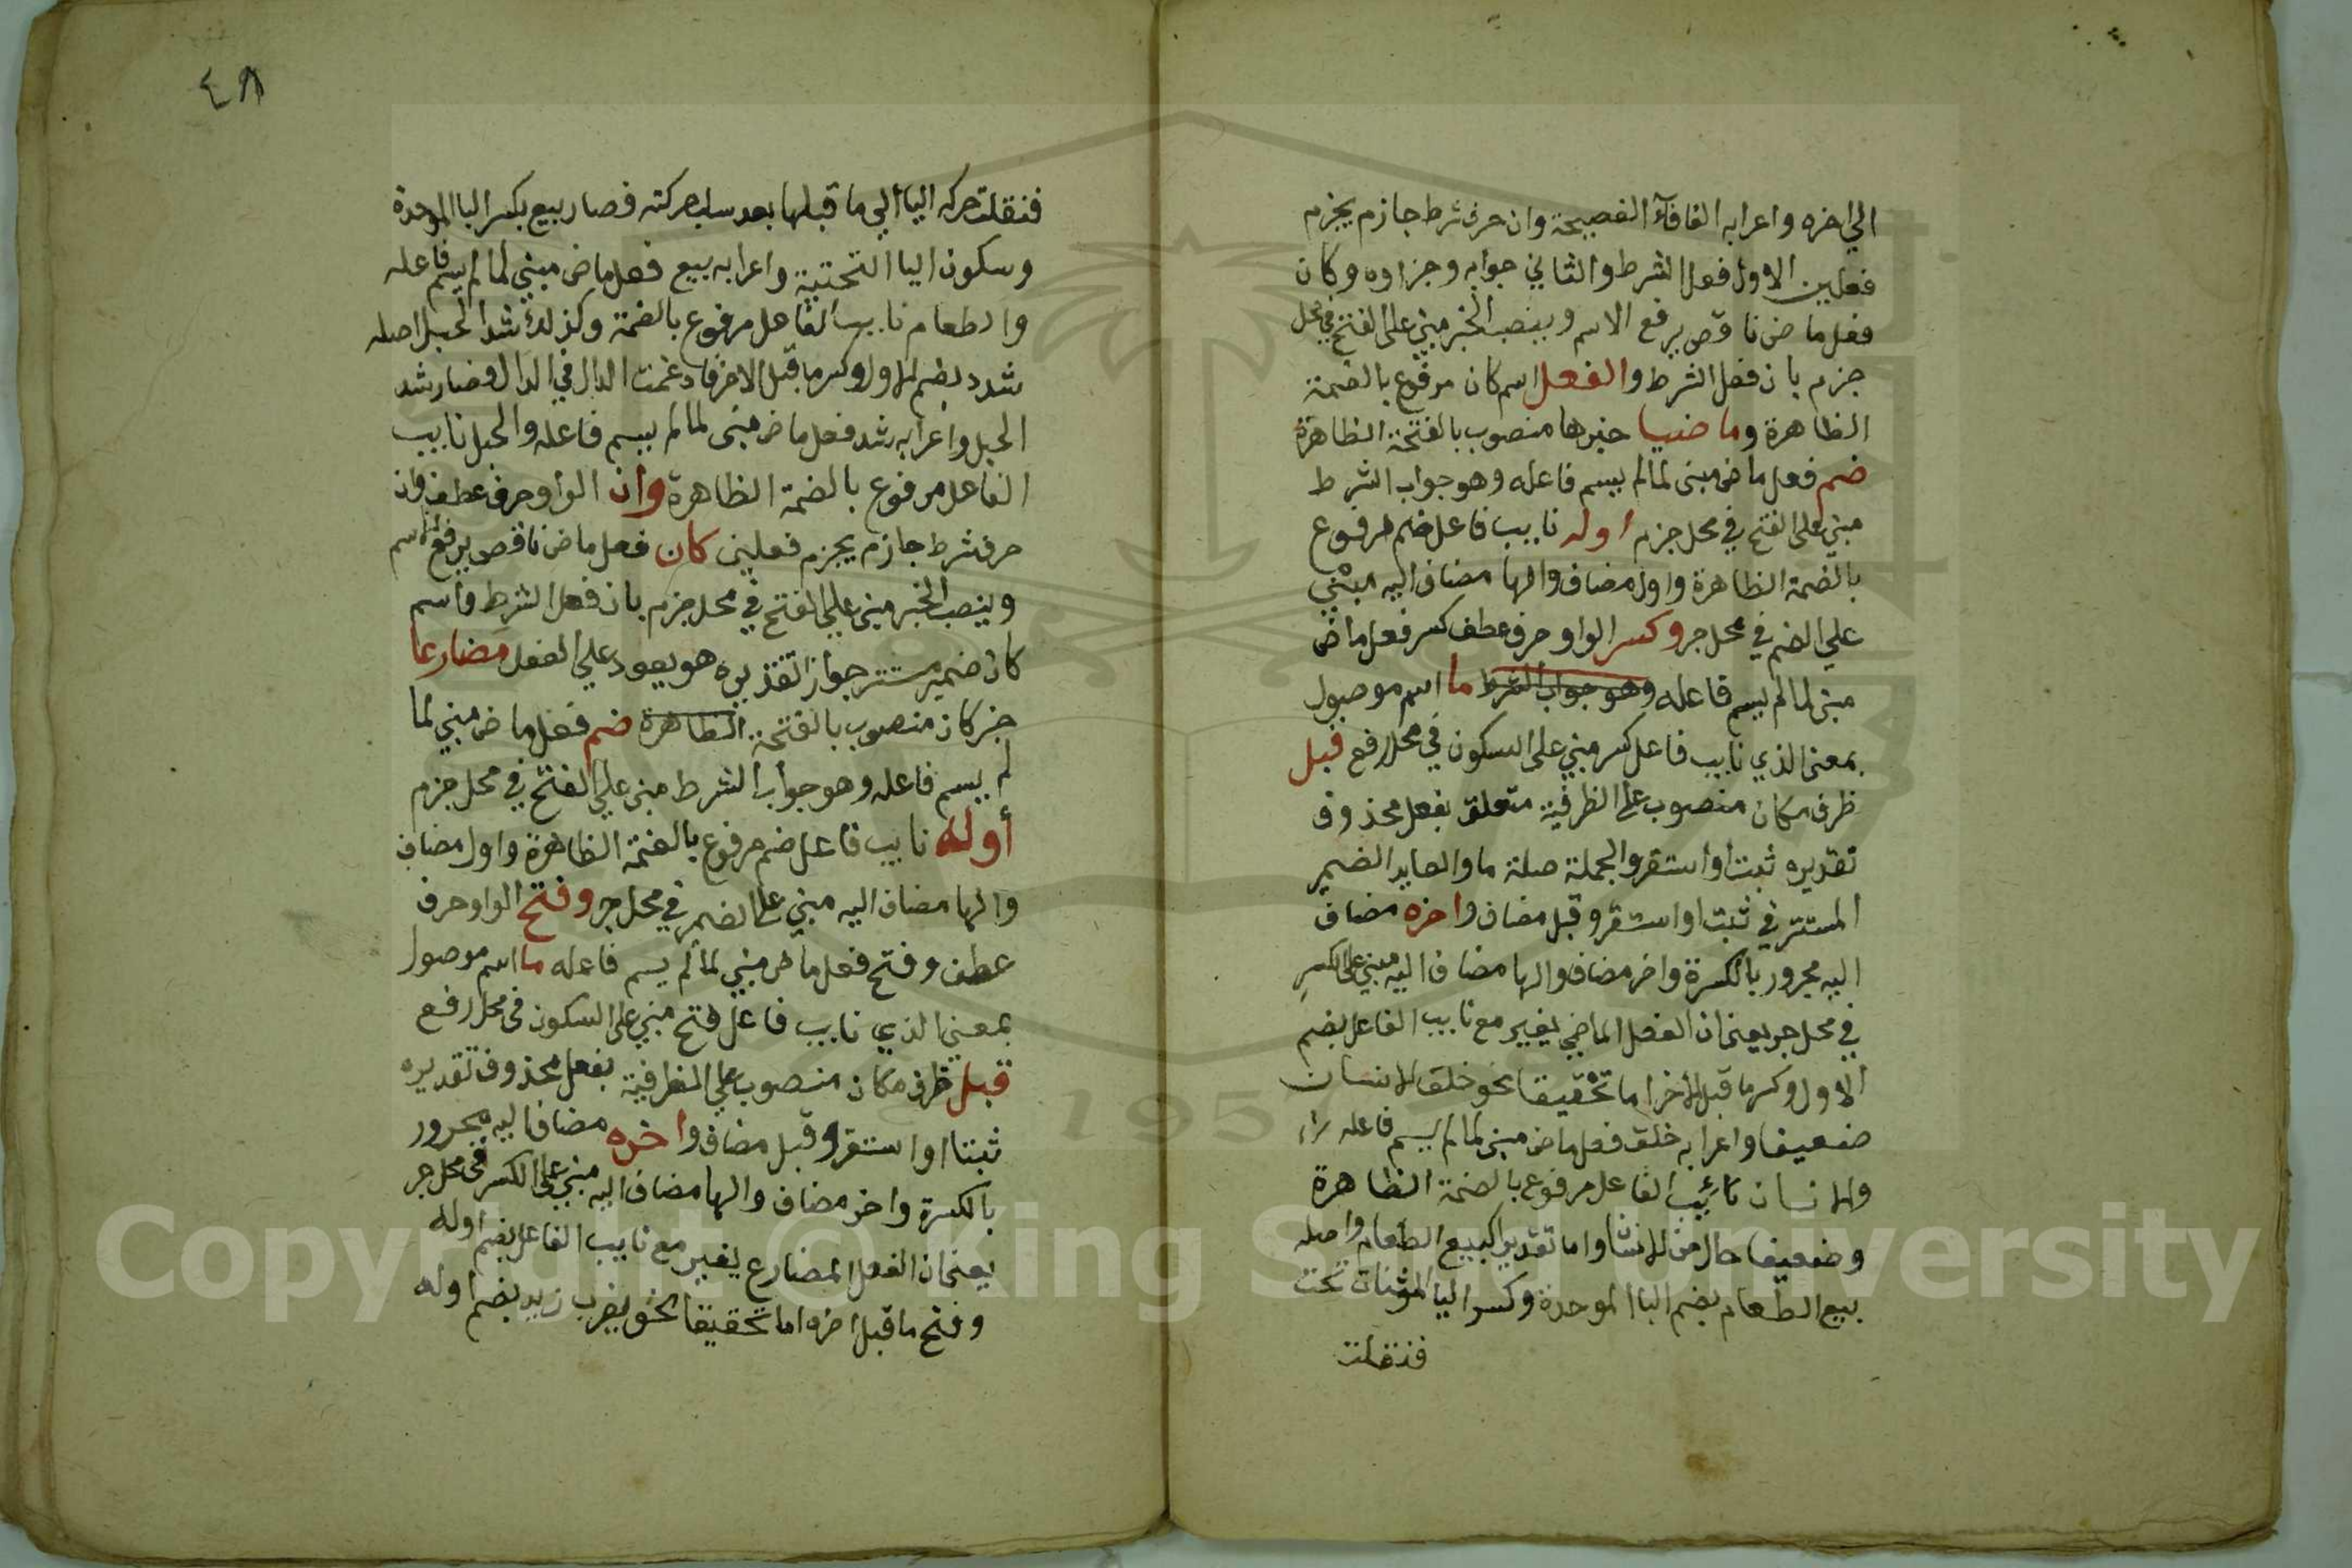 الي اخره واعرابه الفا فآء الفصيحة وان حرف شرط جازم يجزم
فعلين الاول فعل الشرط والثاني جوابه وجزاوه وكان
فعل ماض ناقص يرفع الاسم وينصب الخبر مبني على الفتح في محل
جزم بان فعل الشرط والفعل اسم كان مرفوع بالضمة
الظاهرة وماضيا خبرها منصوب بالفتحة الظاهرة
ضم فعل ماض مبنى لمالم يسم فاعله وهو جواب الشرط
مبني على الفتح في محل جزم اوله نايب فاعل ضم مرفوع
بالضمة الظاهرة واول مضاف والها مضاف اليه مبني
علي الضم في محل جر وكسر الواو حرف عطف كسر فعل ماض
مبنى لمالم يسم فاعله وهو جواب الشرط ما اسم موصول
بمعنى الذي نايب فاعل كسر مبني على السكون في محل رفع قبل
ظرف مكان منصوب على الظرفية متعلق بفعل محذوف
تقديره ثبت او استقر والجملة صلة ما والعايد الضمير
المستتر في ثبت او استقر وقبل مضاف واخره مضاف
اليه مجرور بالكسرة واخر مضاف والها مضاف اليه مبني على الكسر
في محل جر يعني ان الفعل الماضي يغير مع نايب الفاعل بضم
الاول وكسر ما قبل الاخر اما تحقيقا نحو خلق الانسان
ضعيفا واعرابه خلق فعل ماض مبنى لمالم يسم فاعله
والانسان نائيب الفاعل مرفوع بالضمة الظاهرة
وضعيفا حال من الانسان واما تقديرا كبيع الطعام واصله
بيع الطعام بضم البا الموحدة وكسر اليا المثنات تحت
فنقلت
٤٨
فنقلت حركه اليا الي ما قبلها بعد سلب حركته فصار بيع بكسر البا الموحدة
وسكون اليا التحتية واعرابه بيع فعل ماض مبني لمالم يسم فاعله
والطعام نايب الفاعل مرفوع بالضمة وكذلك شد الحبل اصله
شدد بضم الاول وكسر ما قبل الاخر فادغمت الدال في الدال فصار شد
الحبل واعرابه شد فعل ماض مبنى لمالم يسم فاعله والحبل نايب
الفاعل مرفوع بالضمة الظاهرة وان الواو حرف عطف وان
حرف شرط جازم يجزم فعلين كان فعل ماض ناقص يرفع الاسم
وينصب الخبر مبنى علي الفتح في محل جزم بان فعل الشرط واسم
كان ضمير مستتر جوازا تقديره هو يعود علي الفعل مضارعا
خبر كان منصوب بالفتحة الظاهرة ضم فعل ماض مبني لما
لم يسم فاعله وهو جواب الشرط مبنى علي الفتح في محل جزم
أوله نايب فاعل ضم مرفوع بالضمة الظاهرة واول مضاف
والها مضاف اليه مبني على الضم في محل جر وفتح الواو حرف
عطف وفتح فعل ماض مبني لمالم يسم فاعله ما اسم موصول
بمعني الذي نايب فاعل فتح مبني على السكون في محل رفع
قبل ظرف مكان منصوب علي الظرفية بفعل محذوف تقديره
ثبت او استقر وقبل مضاف واخره مضاف اليه مجرور
بالكسرة واخر مضاف والها مضاف اليه مبني على الكسر في محل جر
يعني ان الفعل المضارع يغير مع نايب الفاعل بضم اوله
وفتح ما قبل اخره اما تحقيقا نحو يضرب زيد بضم اوله
Copyright © King Saud University